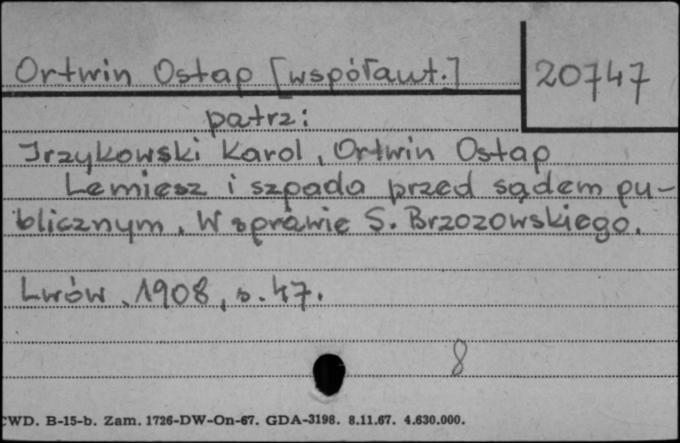 Ortwin Ostap [współaut.]
20747
patrz:
Irzykowski Karol, Ortwin Ostap
Lemiesz i szpada przed sądem pu-
blicznym. W sprawie S. Brzozowskiego.
Lwów, 1908, s. 47.
8
CWD. B-15-b. Zam. 1726-DW-On-67. GDA-3198. 8.11.67. 4.630.000.